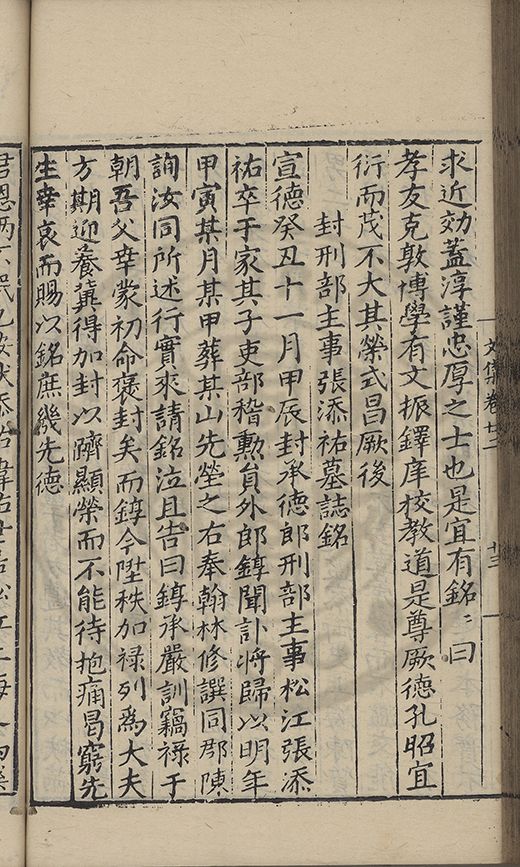 文集卷廿二
十三
求近効蓋淳謹忠厚之士也是宜有銘〻曰
孝友克敦博學有文振鐸庠校教道是尊厥德孔昭宜
衍而茂不大其榮式昌厥後
封刑部主事張添祐墓誌銘
宣德癸丑十一月甲辰封承德郎刑部主事松江張添
祐卒于家其子吏部稽勳員外郎錞聞訃將歸以明年
甲寅某月某甲葬某山先塋之右奉翰林修譔同郡陳
詢汝同所述行實來請銘泣且告曰錞承嚴訓竊祿于
朝吾父幸蒙初命褒封矣而錞今陞秩加祿列爲大夫
方期迎養冀得加封以躋顯榮而不能待抱痛曷窮先
生幸哀而賜以銘庶幾先德